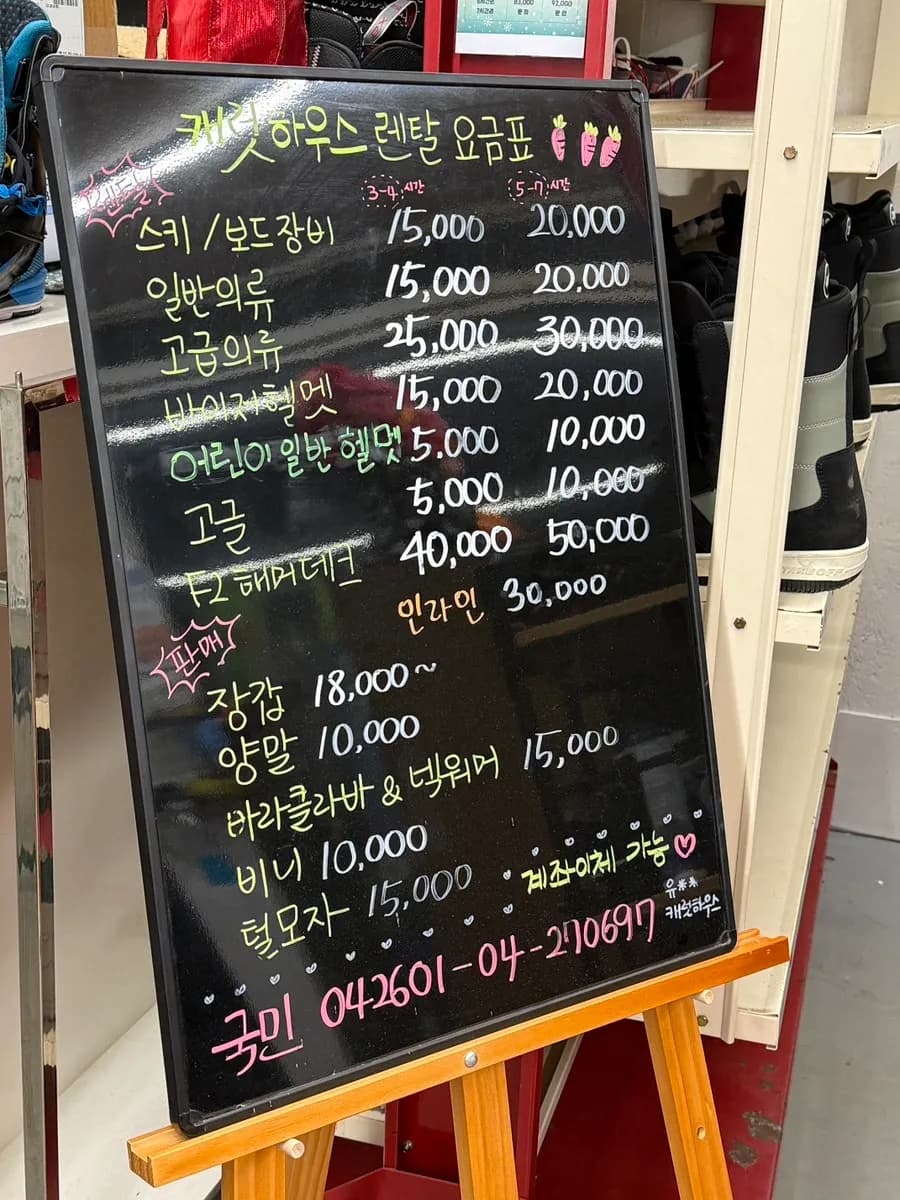 캐럿하우스 렌탈 요금표
렌탈
3-4시간 5-7시간
스키/보드장비 15,000 20,000
일반의류 15,000 20,000
고급의류 25,000 30,000
바이저헬멧 15,000 20,000
어린이 일반 헬멧 5,000 10,000
고글 5,000 10,000
F2 해머데크 40,000 50,000
인라인 30,000
판매
장갑 18,000~
양말 10,000
바라클라바 & 넥워머 15,000
비니 10,000
털모자 15,000
계좌이체 가능♡
국민 042601-04-270697
유**
캐럿하우스